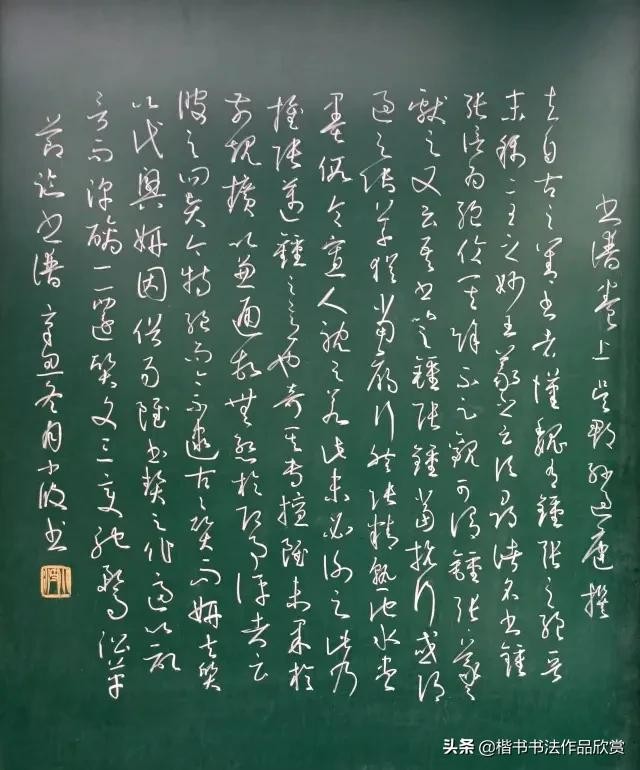 書譜卷上吳郡孫過庭撰
夫自古之善書者漢魏有鍾張之絕晉
末稱二王之妙王羲之云頃尋諸名書鍾
張信為絕倫其餘不足觀可謂鍾張羲
獻之又云吾書比之鍾張鍾當抗行或謂
過之張草猶當雁行然張精熟池水盡
墨假令寡人耽之若此未必謝之此乃
推張邁鍾之意也考其專擅雖未果於
前規摭以兼通故無慚於即事評者云
彼之四賢今特絕而今不逮古々質而妍夫質
以代興妍因俗易雖書契之作適以記
言而淳醨一遷質文三變馳鶩沿革
節臨書譜辛丑冬月小波書
头条@楷书书法作品欣赏